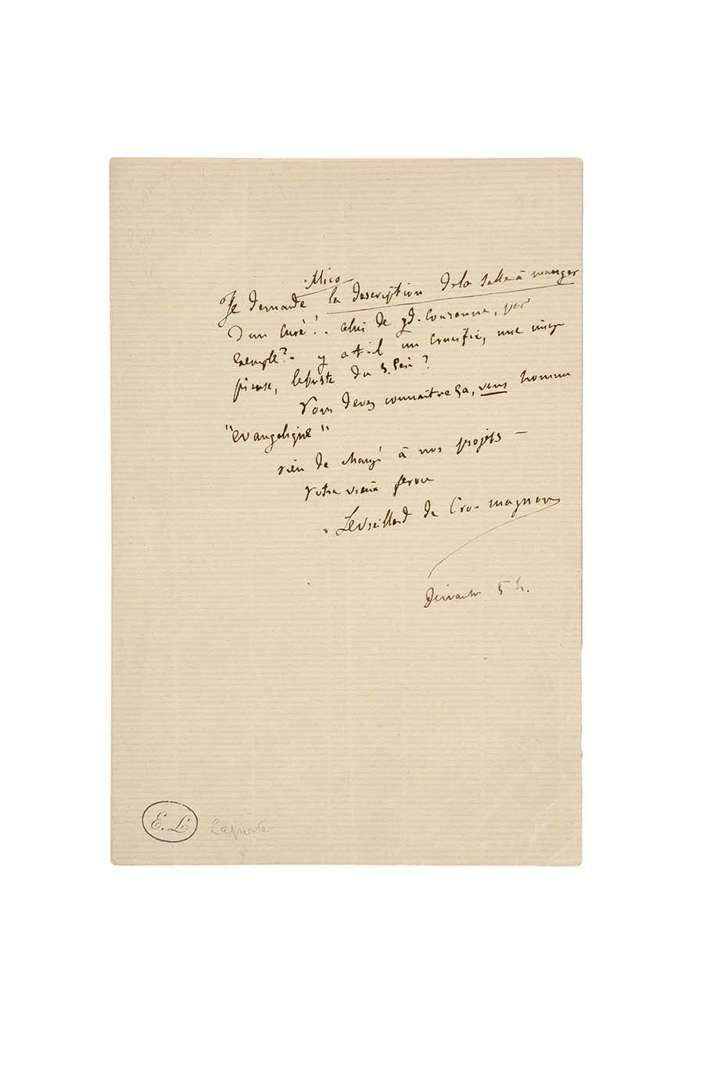 Mico
Je demande la description de la salle à manger
d'un curé!. Celui de gd. Couronne, par
exemple? - y a-t-il un crucifix, une image
pieuse, le buste du S. Père?
Vous devez connaître ça, vous homme
"évangélique"
rien de changé à nos projets -
votre vieux féroce
Le vieillard de Cro-magnon
Dimanche 5 h.
E. L
Laporte